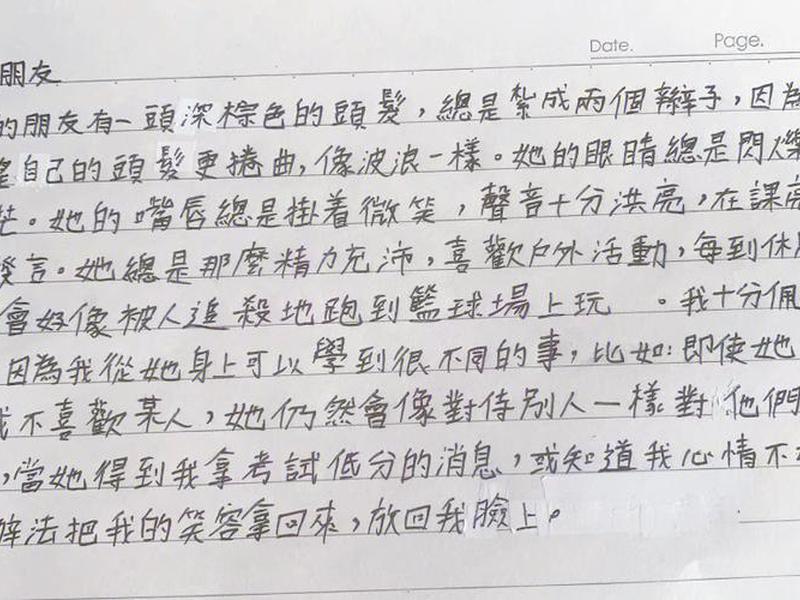 Date. Page.
朋友
的朋友有一頭深棕色的頭髮，總是紮成兩個辮子，因為
自己的頭髮更捲曲，像波浪一樣。她的眼睛總是閃爍
。她的嘴唇總是掛着微笑，聲音十分洪亮，在課
發言。她總是那麼精力充沛，喜歡戶外活動，每到休
會好像被人追殺地跑到籃球場上玩 。我十分佩
因為我從她身上可以學到很不同的事，比如:即使她
不喜歡某人，她仍然會像對待別人一樣對他們
，當她得到我拿考試低分的消息，或知道我心情不
法把我的笑容拿回來，放回我臉上。